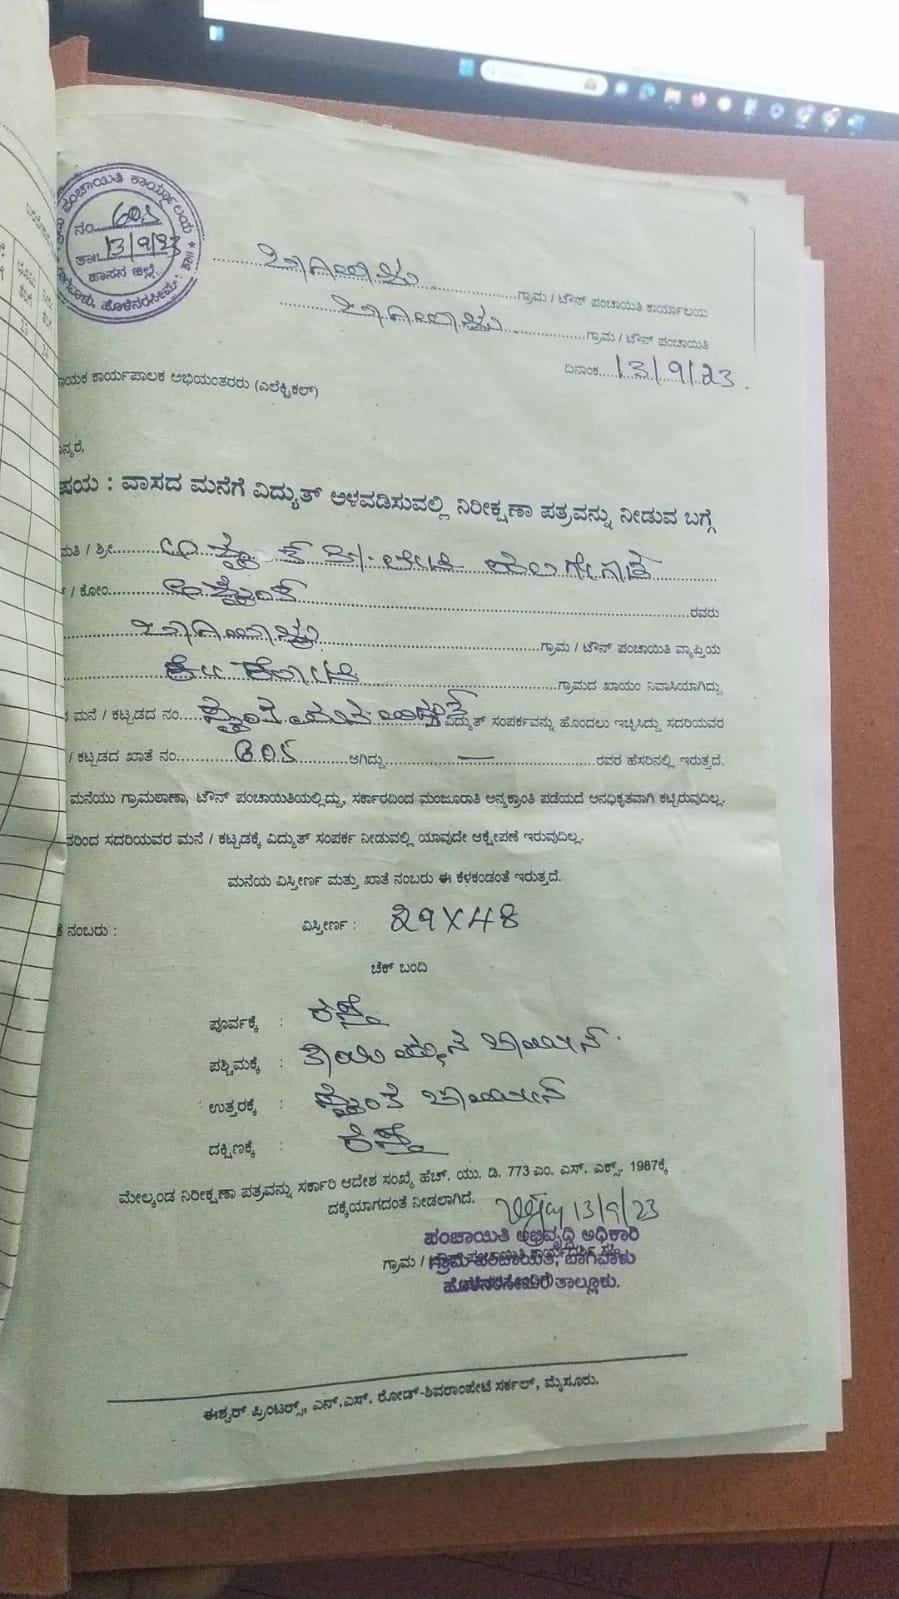 ಪಂಚಾಯಿತಿ ಕಾರ್ಯಾಲಯ
ನಂ. 605
ತಾ॥ 13/9/23
ಹಾಸನ ಜಿಲ್ಲೆ.
ಹೊಳೆನರಸೀಪುರ
ಬಾಗಿವಾಳು ಗ್ರಾಮ / ಟೌನ್ ಪಂಚಾಯಿತಿ ಕಾರ್ಯಾಲಯ
ಬಾಗಿವಾಳು ಗ್ರಾಮ / ಟೌನ್ ಪಂಚಾಯಿತಿ
ದಿನಾಂಕ 13/9/23.
ಾಯಕ ಕಾರ್ಯಪಾಲಕ ಅಭಿಯಂತರರು (ಎಲೆಕ್ಟ್ರಿಕಲ್)
ನ್ಯರೆ,
ಷಯ : ವಾಸದ ಮನೆಗೆ ವಿದ್ಯುತ್ ಅಳವಡಿಸುವಲ್ಲಿ ನಿರೀಕ್ಷಣಾ ಪತ್ರವನ್ನು ನೀಡುವ ಬಗ್ಗೆ
ಮತಿ / ಶ್ರೀ
/ ಕೋಂ ರವರು
ಬಾಗಿವಾಳು ಗ್ರಾಮ / ಟೌನ್ ಪಂಚಾಯಿತಿ ವ್ಯಾಪ್ತಿಯ
ಗ್ರಾಮದ ಖಾಯಂ ನಿವಾಸಿಯಾಗಿದ್ದು
ಮನೆ / ಕಟ್ಟಡದ ನಂ. ವಿದ್ಯುತ್ ಸಂಪರ್ಕವನ್ನು ಹೊಂದಲು ಇಚ್ಛಿಸಿದ್ದು ಸದರಿಯವರ
/ ಕಟ್ಟಡದ ಖಾತೆ ನಂ. ಆಗಿದ್ದು — ರವರ ಹೆಸರಿನಲ್ಲಿ ಇರುತ್ತದೆ.
ಮನೆಯು ಗ್ರಾಮಠಾಣಾ, ಟೌನ್ ಪಂಚಾಯಿತಿಯಲ್ಲಿದ್ದು, ಸರ್ಕಾರದಿಂದ ಮಂಜೂರಾತಿ ಅನ್ಯಕ್ರಾಂತಿ ಪಡೆಯದೆ ಅನಧಿಕೃತವಾಗಿ ಕಟ್ಟಿರುವುದಿಲ್ಲ.
ದರಿಂದ ಸದರಿಯವರ ಮನೆ / ಕಟ್ಟಡಕ್ಕೆ ವಿದ್ಯುತ್ ಸಂಪರ್ಕ ನೀಡುವಲ್ಲಿ ಯಾವುದೇ ಆಕ್ಷೇಪಣೆ ಇರುವುದಿಲ್ಲ.
ಮನೆಯ ವಿಸ್ತೀರ್ಣ ಮತ್ತು ಖಾತೆ ನಂಬರು ಈ ಕೆಳಕಂಡಂತೆ ಇರುತ್ತದೆ.
ನಂಬರು : ವಿಸ್ತೀರ್ಣ : 29X48
ಚೆಕ್ ಬಂದಿ
ಪೂರ್ವಕ್ಕೆ : ರಸ್ತೆ
ಪಶ್ಚಿಮಕ್ಕೆ :
ಉತ್ತರಕ್ಕೆ :
ದಕ್ಷಿಣಕ್ಕೆ : ರಸ್ತೆ
ಮೇಲ್ಕಂಡ ನಿರೀಕ್ಷಣಾ ಪತ್ರವನ್ನು ಸರ್ಕಾರಿ ಆದೇಶ ಸಂಖ್ಯೆ ಹೆಚ್. ಯು. ಡಿ. 773 ಎಂ. ಎಸ್. ಎಕ್ಸ್. 1987ಕ್ಕೆ
ದಕ್ಕೆಯಾಗದಂತೆ ನೀಡಲಾಗಿದೆ. 13/9/23
ಪಂಚಾಯಿತಿ ಅಭಿವೃದ್ಧಿ ಅಧಿಕಾರಿ
ಗ್ರಾಮ / ಗ್ರಾಮ ಪಂಚಾಯಿತಿ, ಬಾಗಿವಾಳು
ಹೊಳೆನರಸೀಪುರ ತಾಲ್ಲೂಕು.
ಈಶ್ವರ್ ಪ್ರಿಂಟರ್ಸ್, ಎನ್.ಎಸ್. ರೋಡ್-ಶಿವರಾಂಪೇಟೆ ಸರ್ಕಲ್, ಮೈಸೂರು.